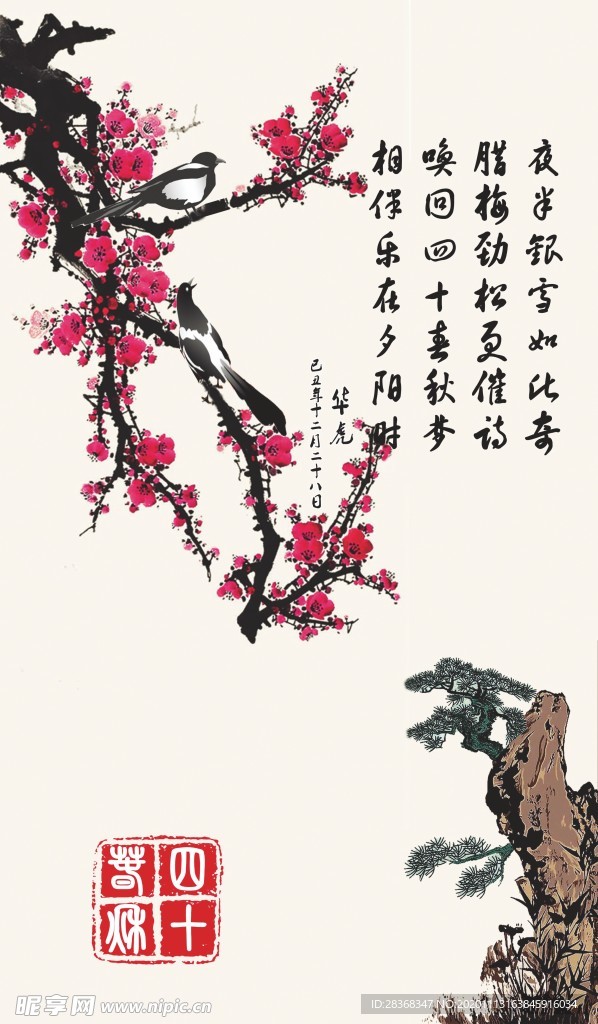 夜半银雪如此奇
腊梅劲松更催诗
唤回四十春秋梦
相伴乐在夕阳时
华虎
己丑年十二月二十八日
四十
春秋
昵享网 www.nipic.cn
ID:28368347 NO:20201113163845916034